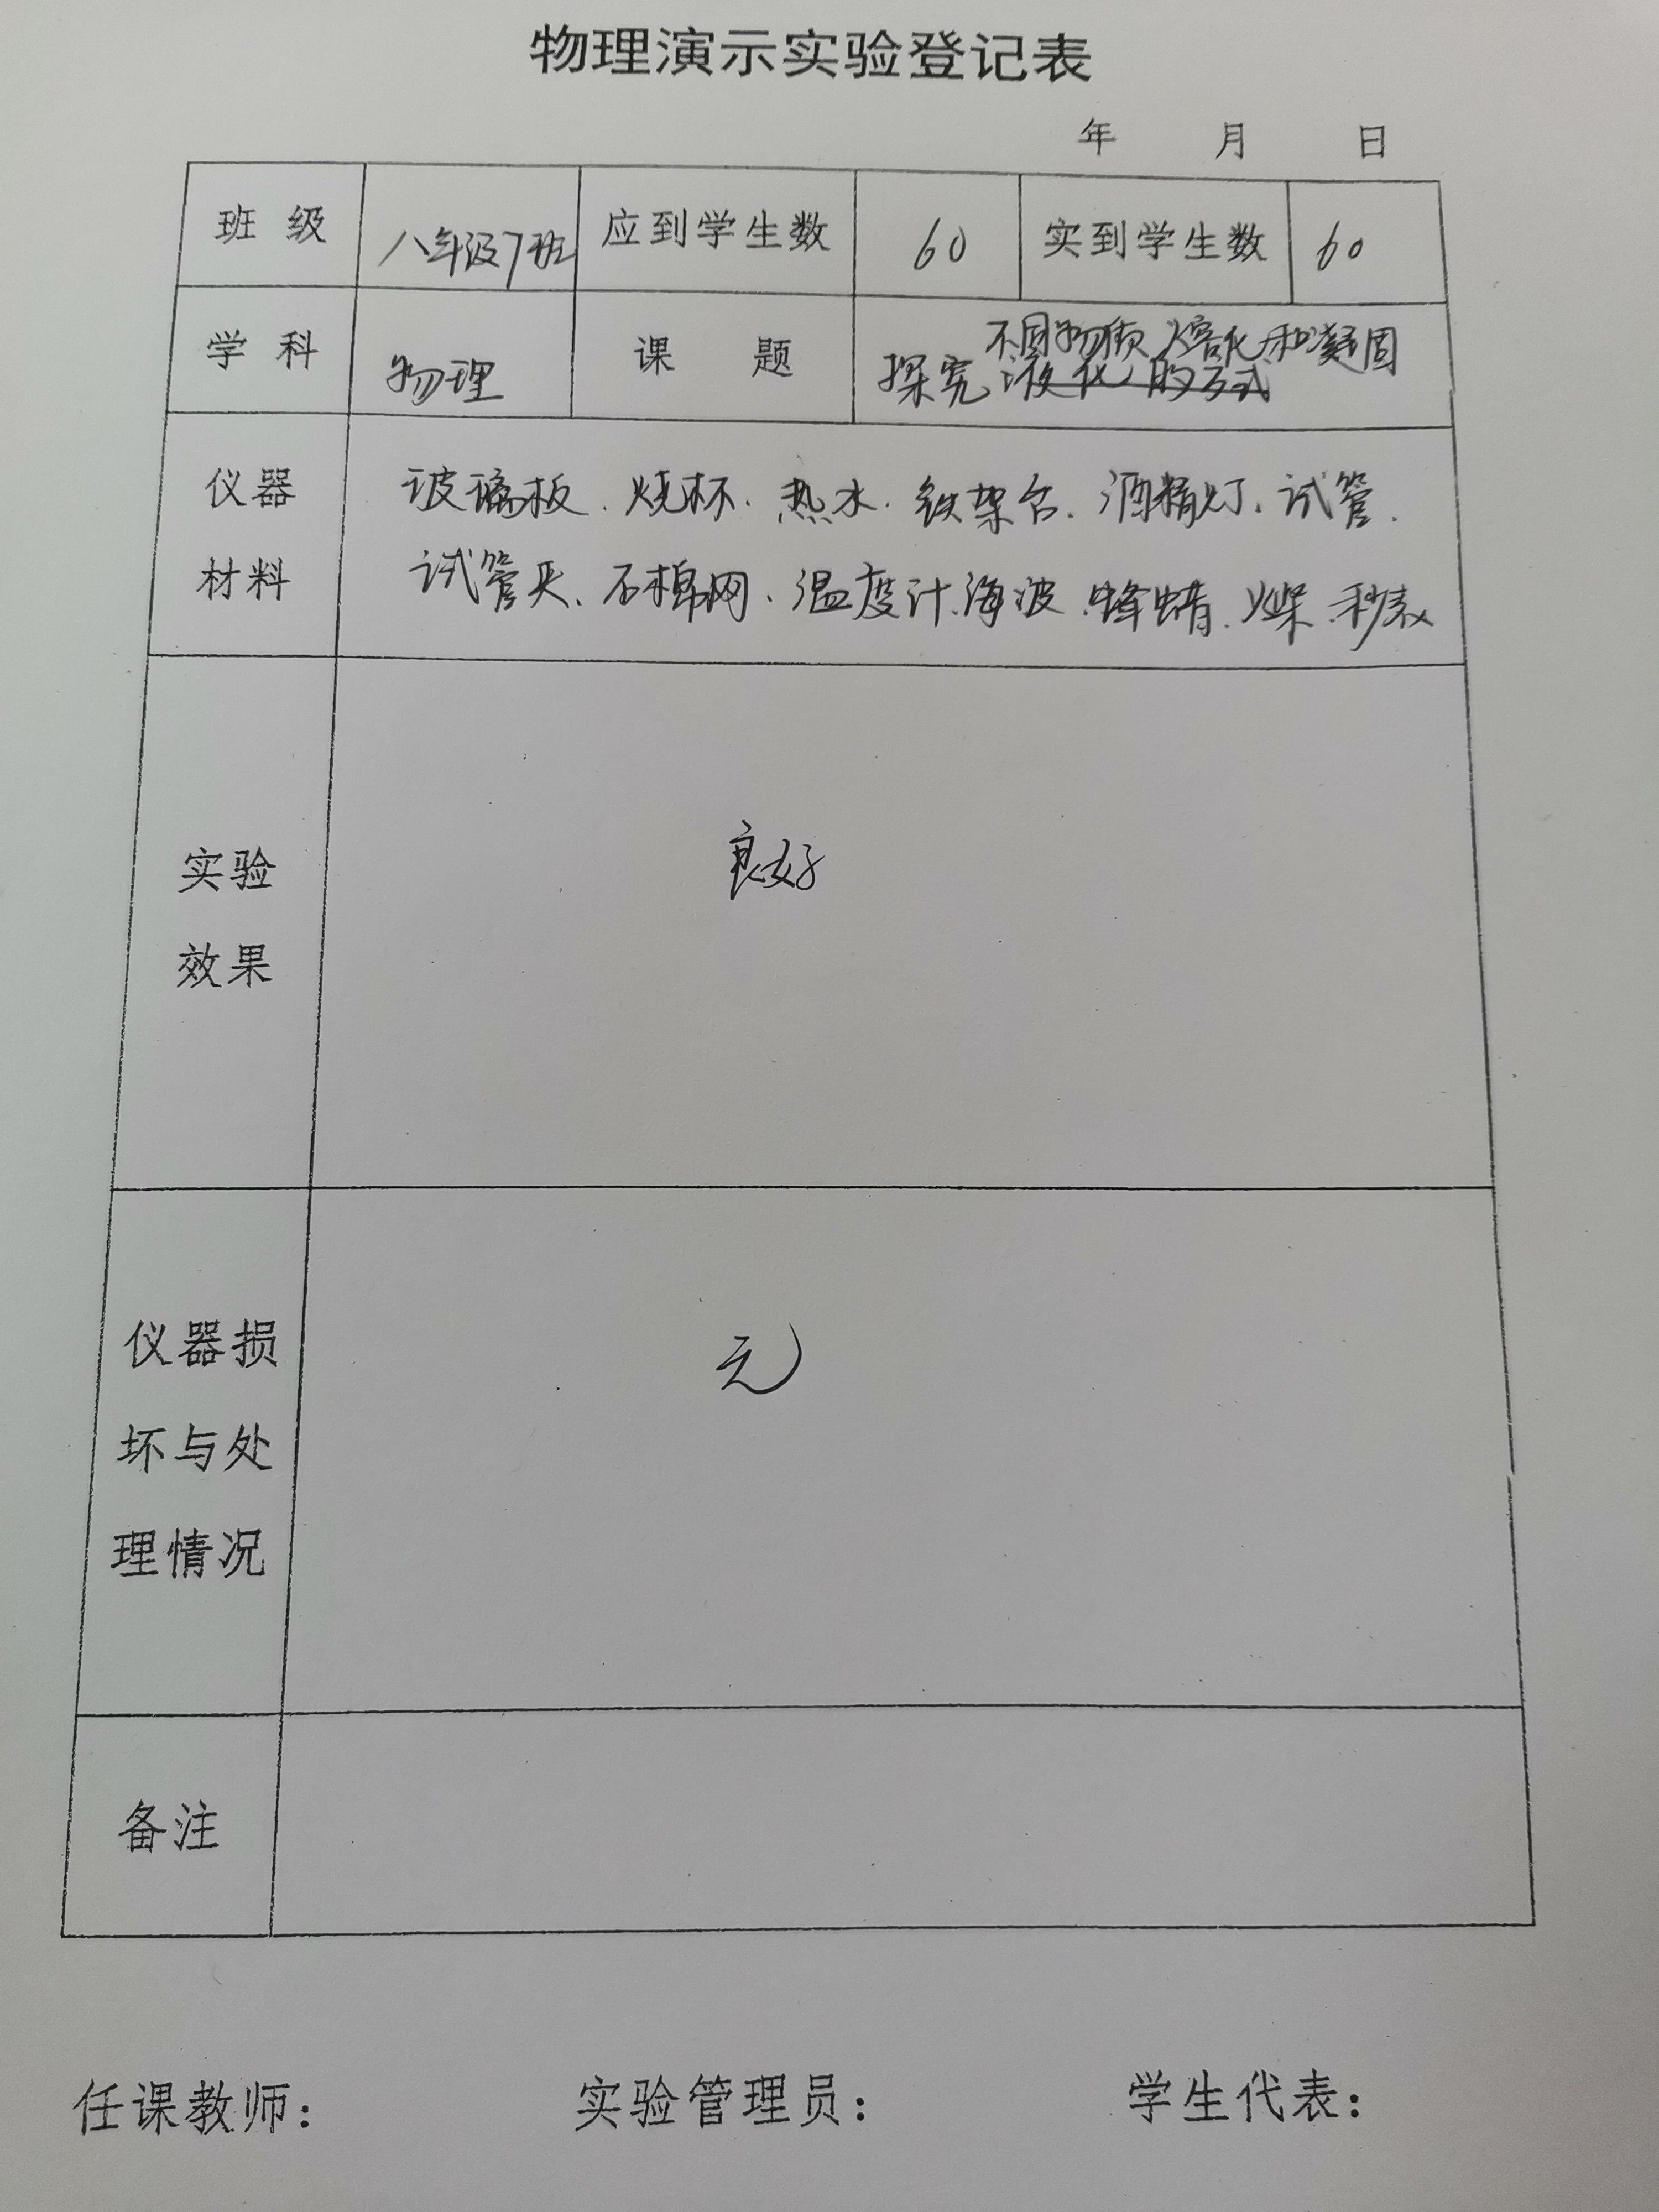 物理演示实验登记表
年 月 日
班 级 八年级7班 应到学生数 60 实到学生数 60
不同物质 熔化和凝固
学 科 物理 课 题 探究 液化的方式
仪器 玻璃板. 烧杯. 热水. 铁架台. 酒精灯. 试管.
材料 试管夹、石棉网、温度计.海波.蜂蜡.火柴.秒表
实验 良好
效果
仪器损 无
坏与处
理情况
备注
任课教师: 实验管理员: 学生代表: